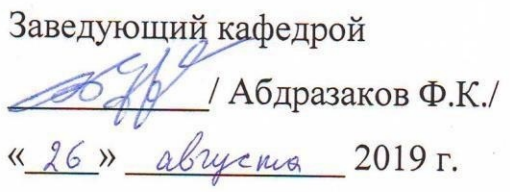 Заведующий кафедрой
/ Абдразаков Ф.К./
«26» августа 2019 г.